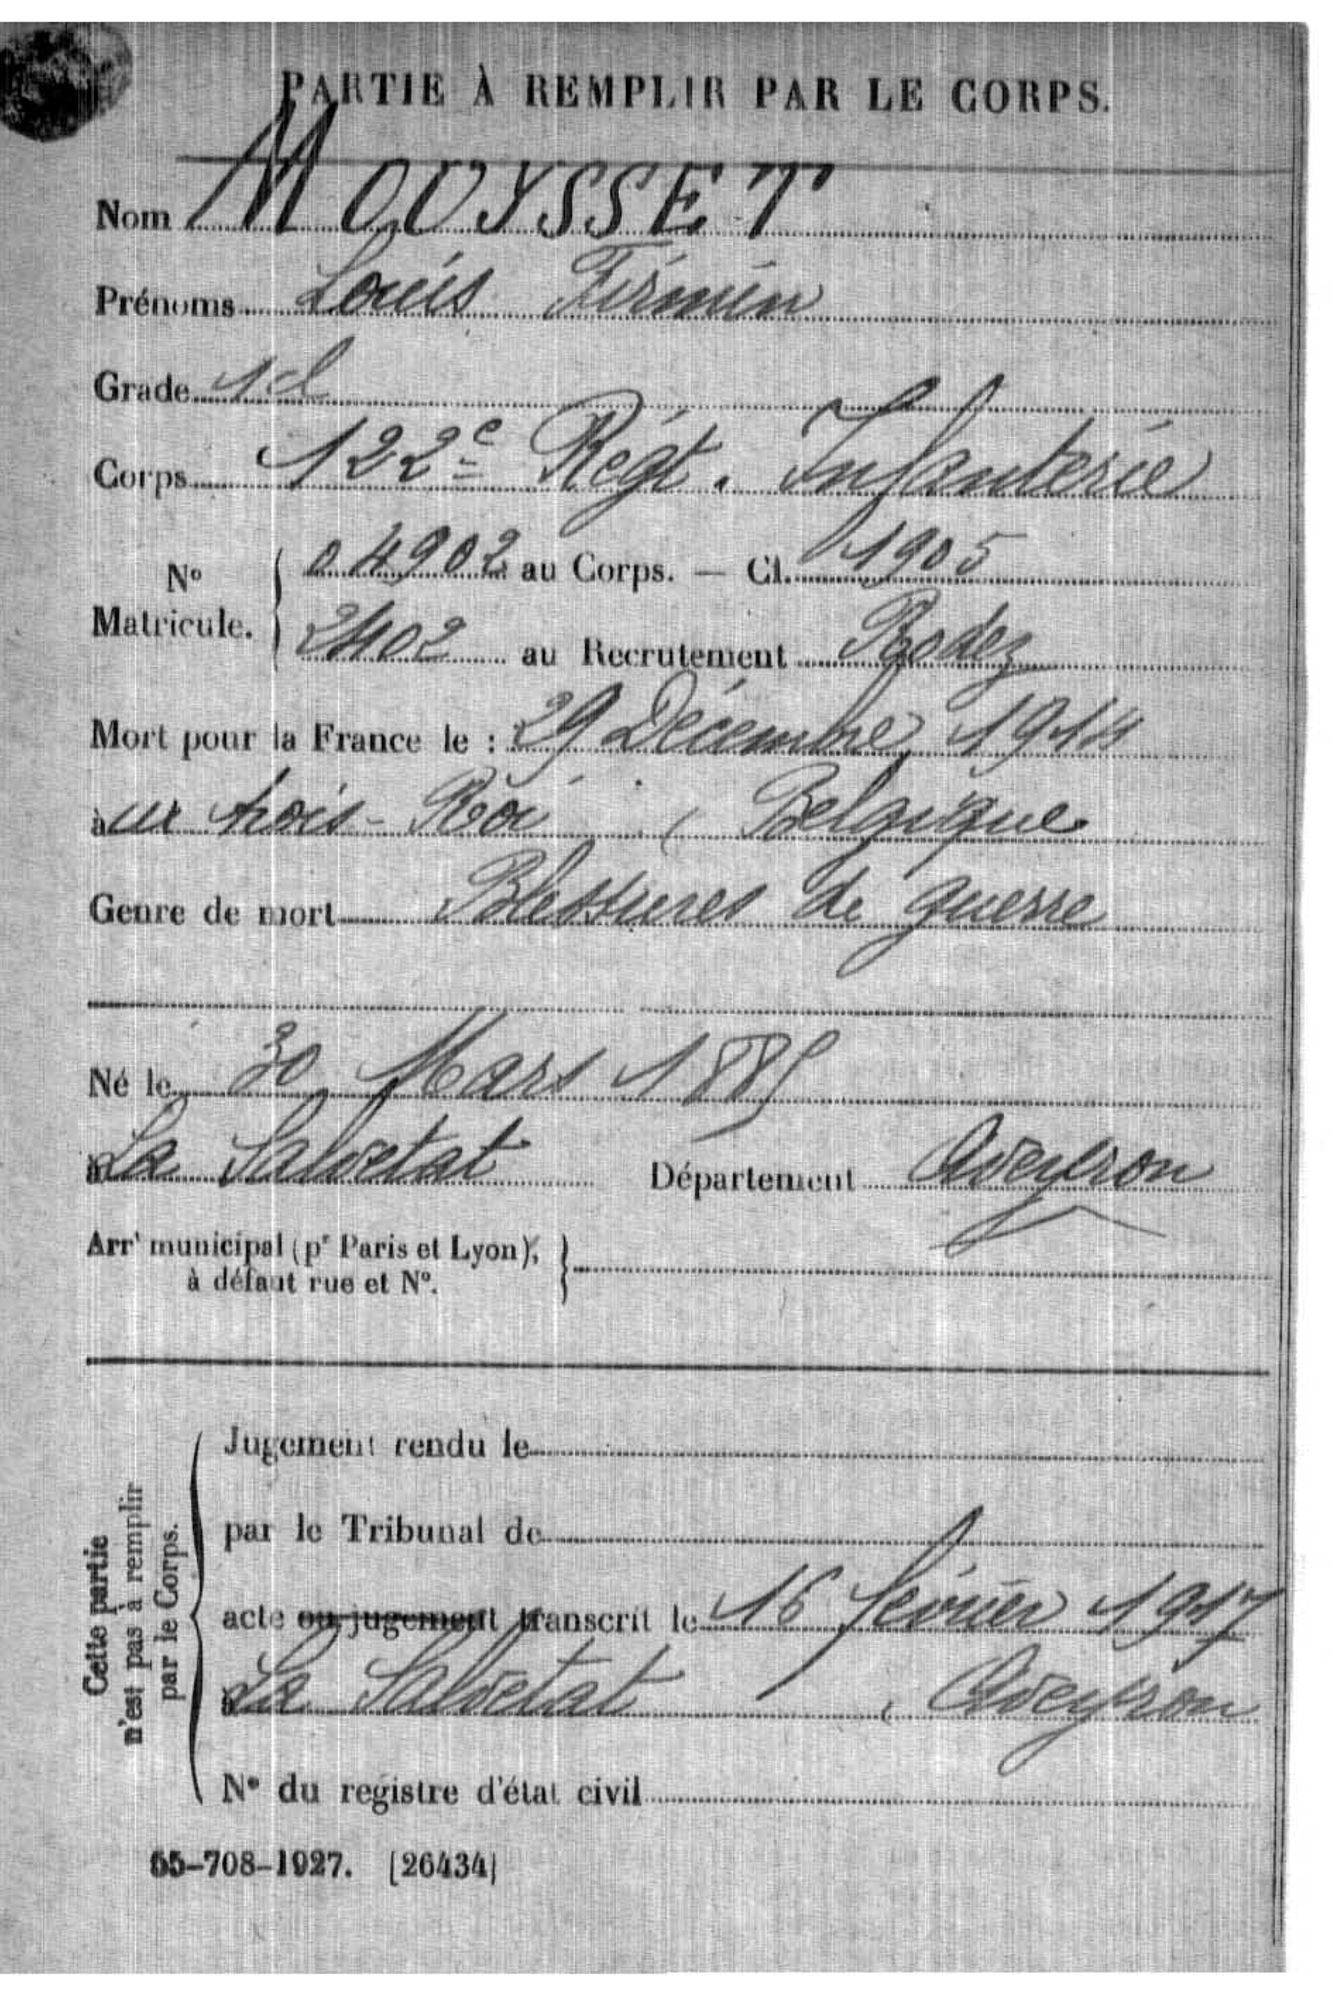 PARTIE À REMPLIR PAR LE CORPS.
Nom MOUYSSET
Prénoms Louis Firmin
Grade 1 cl
Corps 122e Régt. Infanterie
No Matricule. { 04902 au Corps. — Cl. 1905
2402 au Recrutement Rodez
Mort pour la France le : 29 Décembre 1914
aux trois-Roi ( Belgique
Genre de mort Blessures de guerre
Né le 30 Mars 1885
à La Salvetat Département Aveyron
Arrt municipal (pr Paris et Lyon),
à défaut rue et No.
Cette partie
n'est pas à remplir
par le Corps.
Jugement rendu le
par le Tribunal de
acte ou jugement transcrit le 16 février 1917
à La Salvetat ( Aveyron
No du registre d'état civil
55-708-1927. [26434]